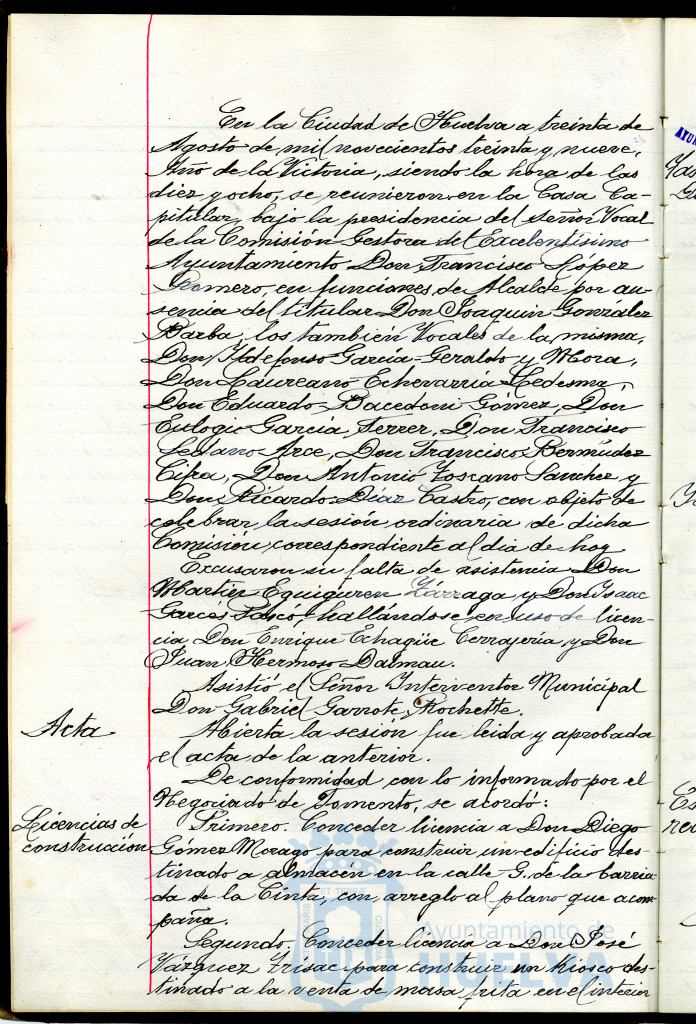 En la Ciudad de Huelva a treinta de
Agosto de mil novecientos treinta y nueve,
Año de la Victoria, siendo la hora de las
diez y ocho, se reunieron en la Casa Ca-
pitular, bajo la presidencia del señor Vocal
de la Comisión Gestora del Excelentísimo
Ayuntamiento Don Francisco López
Romero, en funciones de Alcalde por au-
sencia del titular Don Joaquin González
Barba, los también Vocales de la misma,
Don Ildefonso García-Geraldo y Mora,
Don Laureano Echevarría Ledesma,
Don Eduardo Bacedoni Gómez, Don
Eulogio García Ferrer, Don Francisco
Sedano Arce, Don Francisco Bermúdez
Cifra, Don Antonio Toscano Sanchez y
Don Ricardo Díaz Castro, con objeto de
celebrar la sesión ordinaria de dicha
Comisión, correspondiente al dia de hoy
Excusaron su falta de asistencia Don
Martier Eguiguren Zárraga y Don Isaac
Garcés hallándose en uso de licen-
cia Don Enrique Echagüe Cerrajería y Don
Juan Hermoso Dalmau.
Asistió el Señor Interventor Municipal
Don Gabriel Garrote Rochette.
Acta
Abierta la sesión fue leida y aprobada
el acta de la anterior.
De conformidad con lo informado por el
Negociado de Fomento, se acordó:
Licencias de
construcción
Primero. Conceder licencia a Don Diego
Gómez Morago para construir un edificio des-
tinado a almacén en la calle G. de la barria-
da de la Cinta, con arreglo al plano que acom-
paña.
Segundo. Conceder licencia a Don José
Vázquez para construir un Kiosco des-
tinado a la venta de masa frita en el interior
Ayuntamiento de
HUELVA